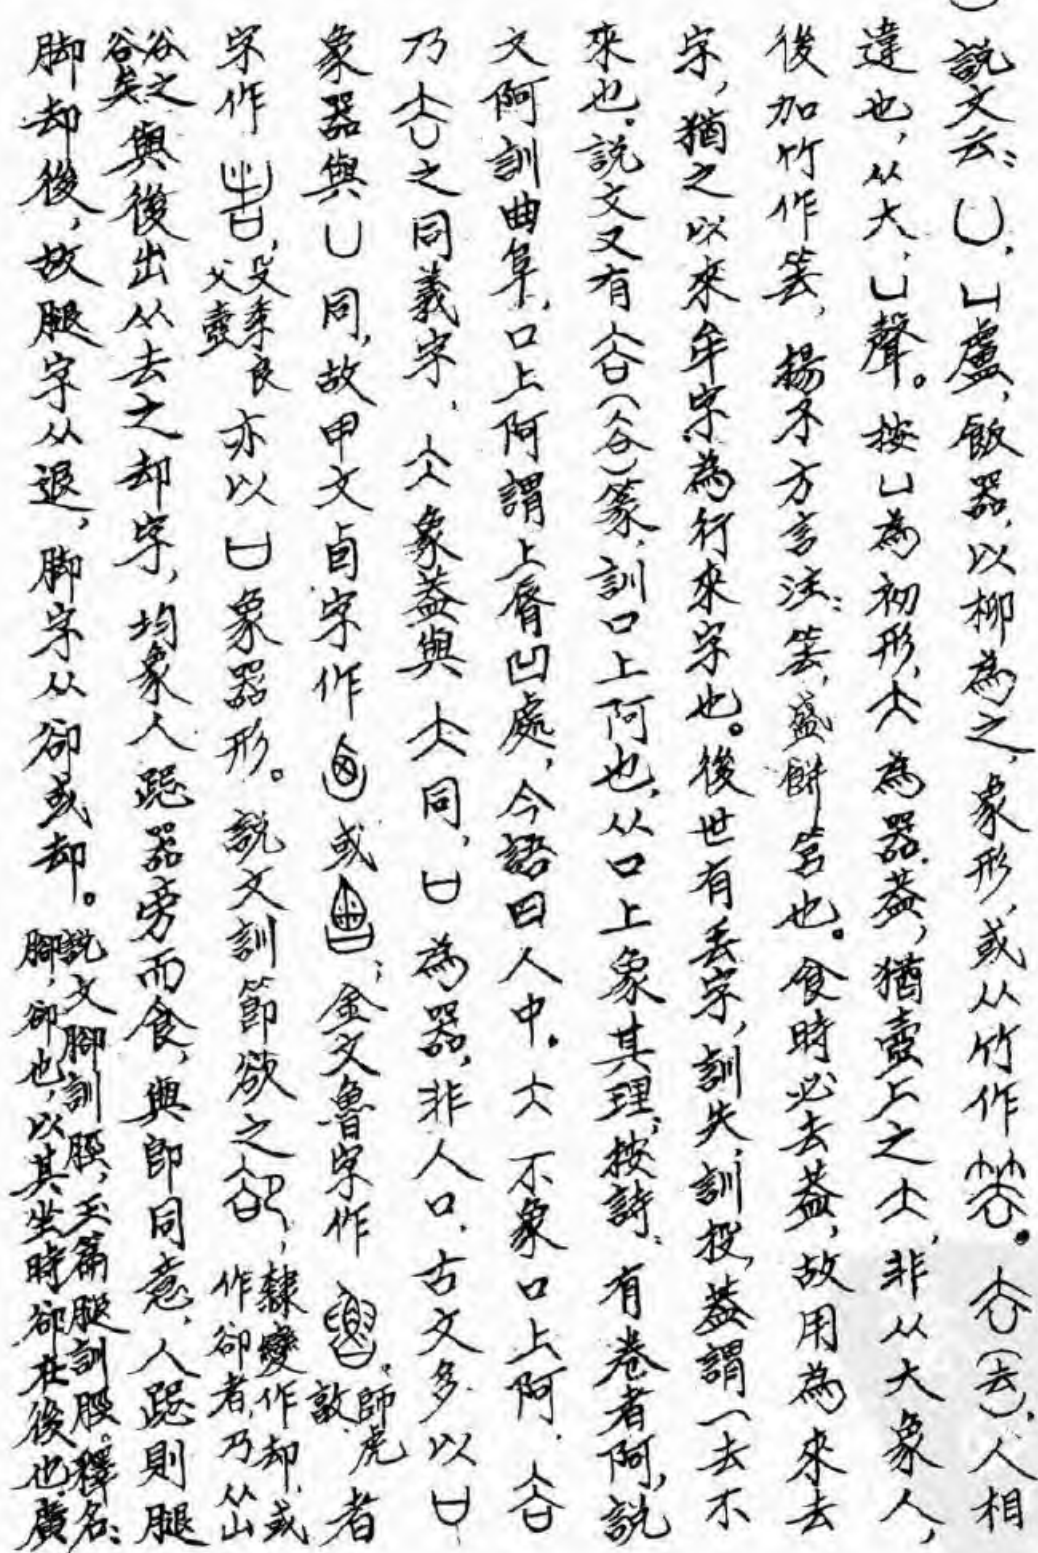 說文云：凵，凵盧，飯器，以柳為之，象形，或从竹作。(去)，人相
違也，从大，凵聲。按凵為初形，大為器蓋，猶壺上之大，非从大象人，
後加竹作筶，揚子方言注：筶，盛餅筥也。食時必去蓋，故用為來去
字，猶之以來牟字為行來字也。後世有丟字，訓失訓投，蓋謂一去不
來也。說文又有谷(谷)篆，訓口上阿也，从口上象其理，按詩：有卷者阿，說
文阿訓曲阜，口上阿謂上脣凹處，今語曰人中。大不象口上阿，谷
乃去之同義字，大象蓋與大同，口為器，非人口，古文多以口
象器與凵同，故甲文卣字作或；金文魯字作。師虎敦者
字作，殳季良父壺亦以口象器形。說文訓節欲之，隸變作却，或作卻者，乃从山谷之谷矣。
與後出从去之却字，均象人跽器旁而食，與卽同意，人跽則腿
脚却後，故腿字从退，脚字从卻或却。說文腳訓脛，玉篇腿訓股。釋名：腳，卻也，以其坐時卻在後也。廣